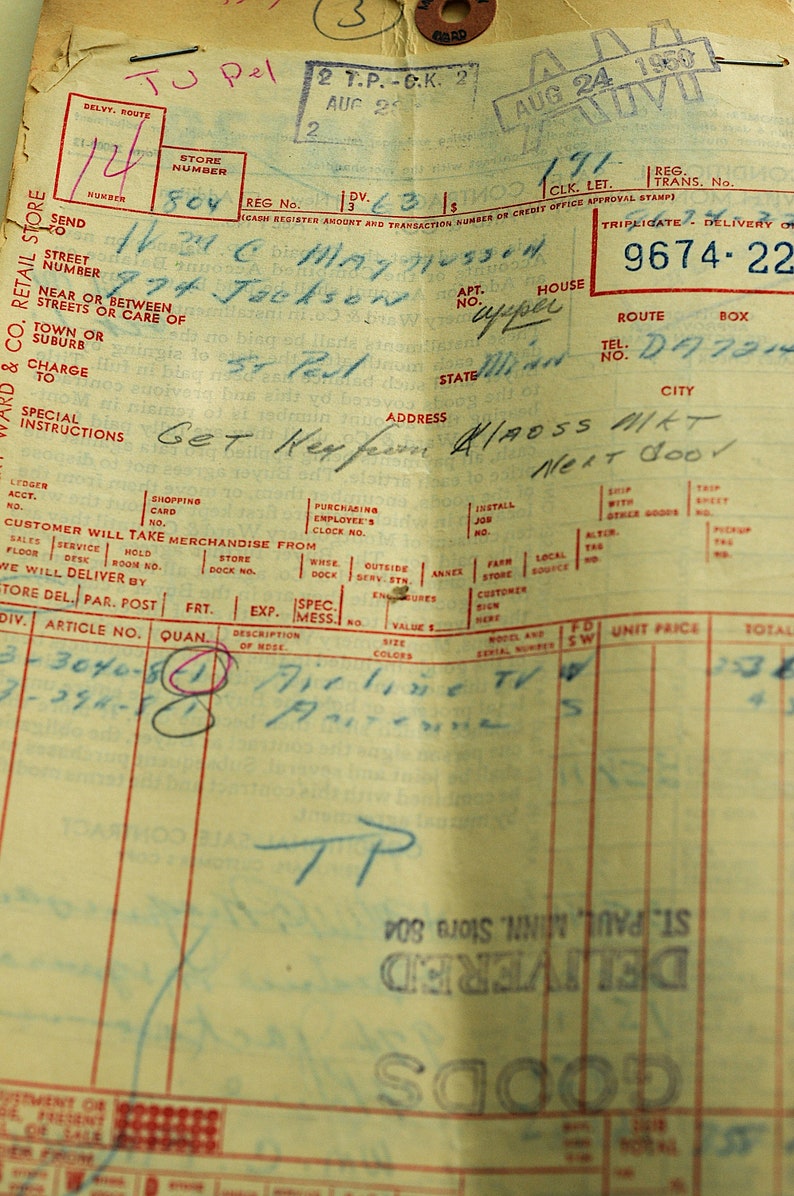 3
WARD
TU Del
2 T.P.-C.K. 2
AUG 2
2
AUG 24 1950
DELVY. ROUTE
14
NUMBER
STORE NUMBER
804
REG No.
DV. 3 63
$
171
CLK. LET.
REG. TRANS. No.
(CASH REGISTER AMOUNT AND TRANSACTION NUMBER OR CREDIT OFFICE APPROVAL STAMP)
TRIPLICATE - DELIVERY
9674-22
WARD & CO. RETAIL STORE
SEND TO
C Magnusson
STREET NUMBER
974 Jackson
APT. NO.
upper
HOUSE
NEAR OR BETWEEN STREETS OR CARE OF
ROUTE BOX
TOWN OR SUBURB
St Paul
STATE Minn
TEL. NO. DA 7214
CHARGE TO
ADDRESS
CITY
SPECIAL INSTRUCTIONS
Get Key from Klaoss Mkt
Next Door
LEDGER ACCT. NO.
SHOPPING CARD NO.
PURCHASING EMPLOYEE'S CLOCK NO.
INSTALL JOB NO.
SHIP WITH OTHER GOODS
TRIP SHEET NO.
CUSTOMER WILL TAKE MERCHANDISE FROM
SALES FLOOR
SERVICE DESK
HOLD ROOM NO.
STORE DOCK NO.
WHSE. DOCK
OUTSIDE SERV. STN.
ANNEX
FARM STORE
LOCAL SOURCE
ALTER. TAG NO.
PICKUP TAG NO.
WE WILL DELIVER BY
STORE DEL.
PAR. POST
FRT.
EXP.
SPEC. MESS.
NO.
VALUE $
CUSTOMER SIGN HERE
DIV.
ARTICLE NO.
QUAN.
DESCRIPTION OF MDSE.
SIZE COLORS
MODEL AND SERIAL NUMBER
FD SW
UNIT PRICE
TOTAL
3-3040-8 1 Airline TV W
1 Antenna S
TP
ST. PAUL, MINN. Store 804
DELIVERED
GOODS
SUB TOTAL